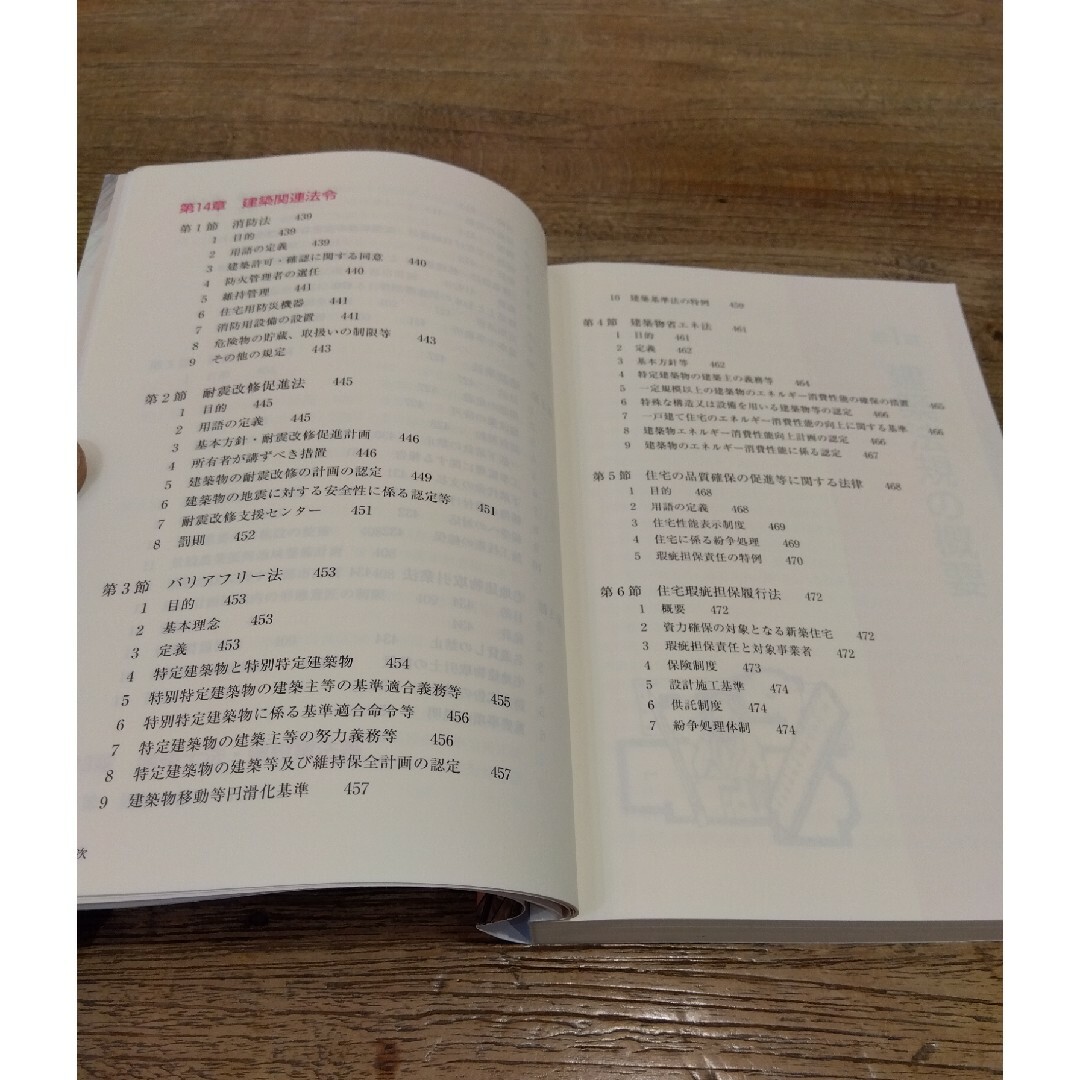 第14章 建築関連法令
第1節 消防法 439
1 目的 439
2 用語の定義 439
3 建築許可・確認に関する同意 440
4 防火管理者の選任 440
5 維持管理 441
6 住宅用防災機器 441
7 消防用設備の設置 441
8 危険物の貯蔵、取扱いの制限等 443
9 その他の規定 443
第2節 耐震改修促進法 445
1 目的 445
2 用語の定義 445
3 基本方針・耐震改修促進計画 446
4 所有者が講ずべき措置 446
5 建築物の耐震改修の計画の認定 449
6 建築物の地震に対する安全性に係る認定等 451
7 耐震改修支援センター 451
8 罰則 452
第3節 バリアフリー法 453
1 目的 453
2 基本理念 453
3 定義 453
4 特定建築物と特別特定建築物 454
5 特別特定建築物の建築主等の基準適合義務等 455
6 特別特定建築物に係る基準適合命令等 456
7 特定建築物の建築主等の努力義務等 456
8 特定建築物の建築等及び維持保全計画の認定 457
9 建築物移動等円滑化基準 457
次
10 建築基準法の特例 459
第4節 建築物省エネ法 461
1 目的 461
2 定義 462
3 基本方針等 462
4 特定建築物の建築主の義務等 464
5 一定規模以上の建築物のエネルギー消費性能の確保の措置 465
6 特殊な構造又は設備を用いる建築物等の認定 466
7 一戸建て住宅のエネルギー消費性能の向上に関する基準 466
8 建築物エネルギー消費性能向上計画の認定 466
9 建築物のエネルギー消費性能に係る認定 467
第5節 住宅の品質確保の促進等に関する法律 468
1 目的 468
2 用語の定義 468
3 住宅性能表示制度 469
4 住宅に係る紛争処理 469
5 瑕疵担保責任の特例 470
第6節 住宅瑕疵担保履行法 472
1 概要 472
2 資力確保の対象となる新築住宅 472
3 瑕疵担保責任と対象事業者 472
4 保険制度 473
5 設計施工基準 474
6 供託制度 474
7 紛争処理体制 474